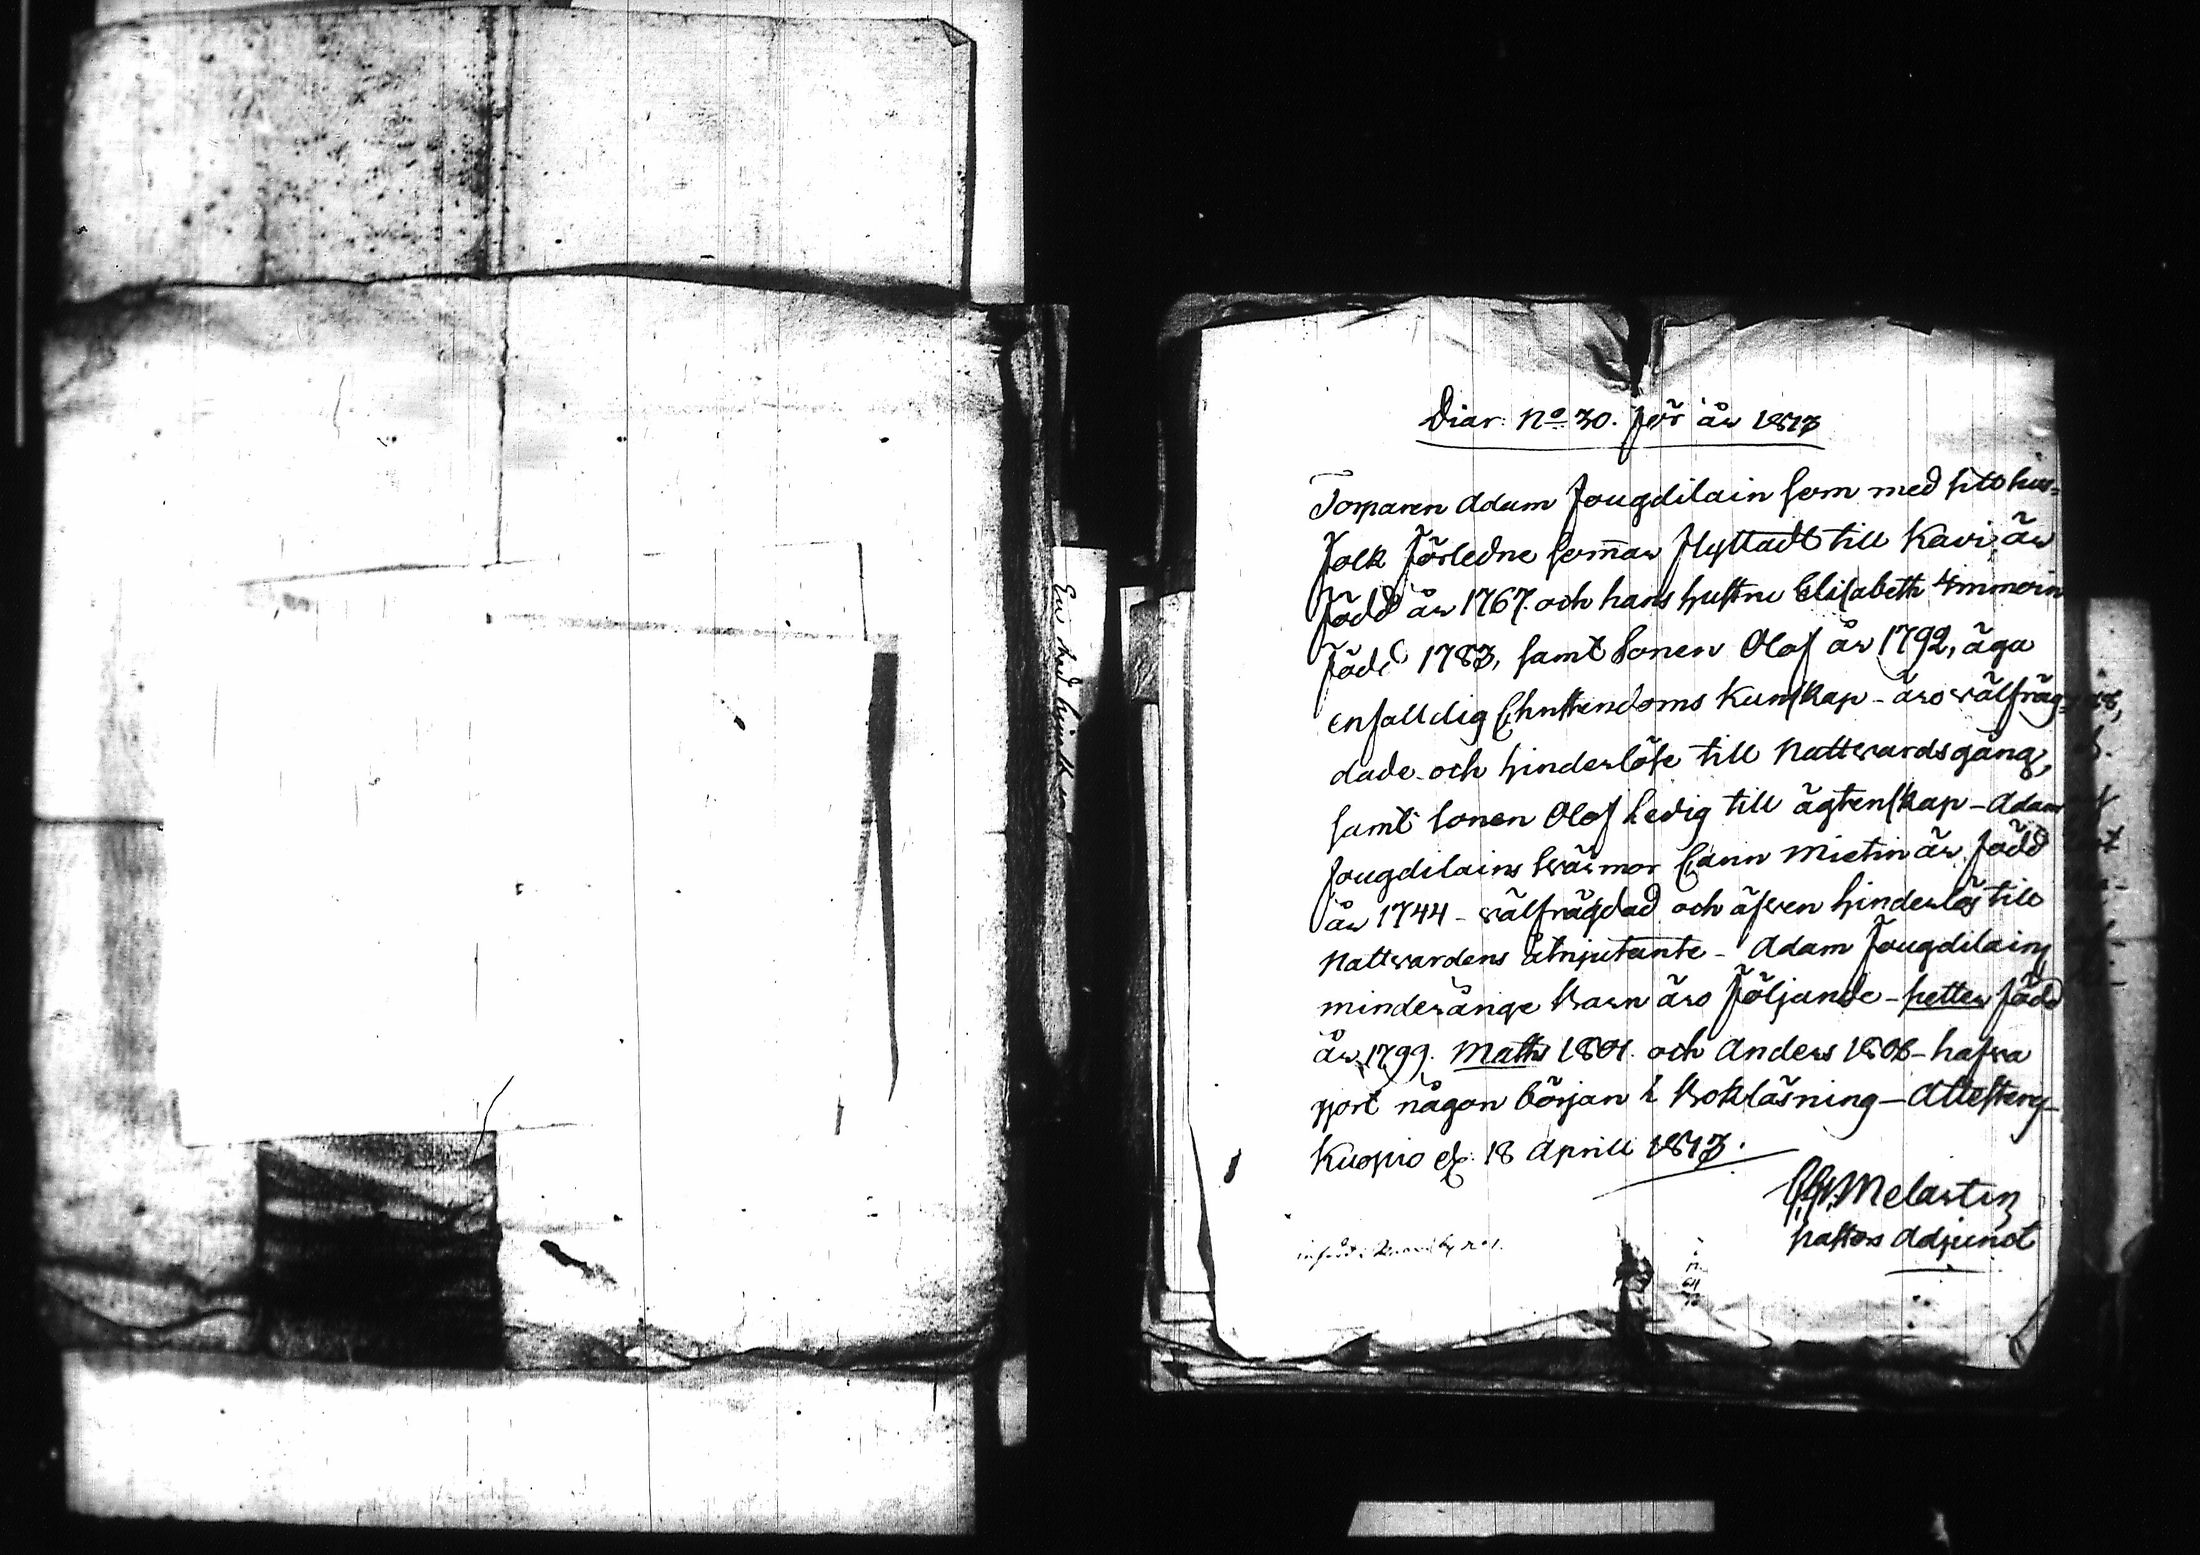 Diar. No 30. för år 1813
Torparen Adam Jougdilain som med sitt hus-
folk förledne sommar flyttadt till Kavi, är
född år 1767. och hans hustru Elisabeth Immoin
född 1783, samt Sonen Olof år 1792, äga
enfalldig Christendoms Kunskap - äro välfräg-
dade och hinderlöse till Nattvardsgång,
samt Sonen Olof Ledig till ägtenskap - Adam
Jougdilains Svärmor Carin Mietin är född
år 1744 - välfrägdad och äfven hinderlös till
Nattvardens åtnjutante - Adam Jougdilains
minderårige Barn äro följande - Petter född
år 1799. Maths 1801. och Anders 1808 - hafva
gjort någon början i Bokläsning - Attesterar
Kuopio d. 18 Aprill 1813.
Melartin
Pastors Adjunct